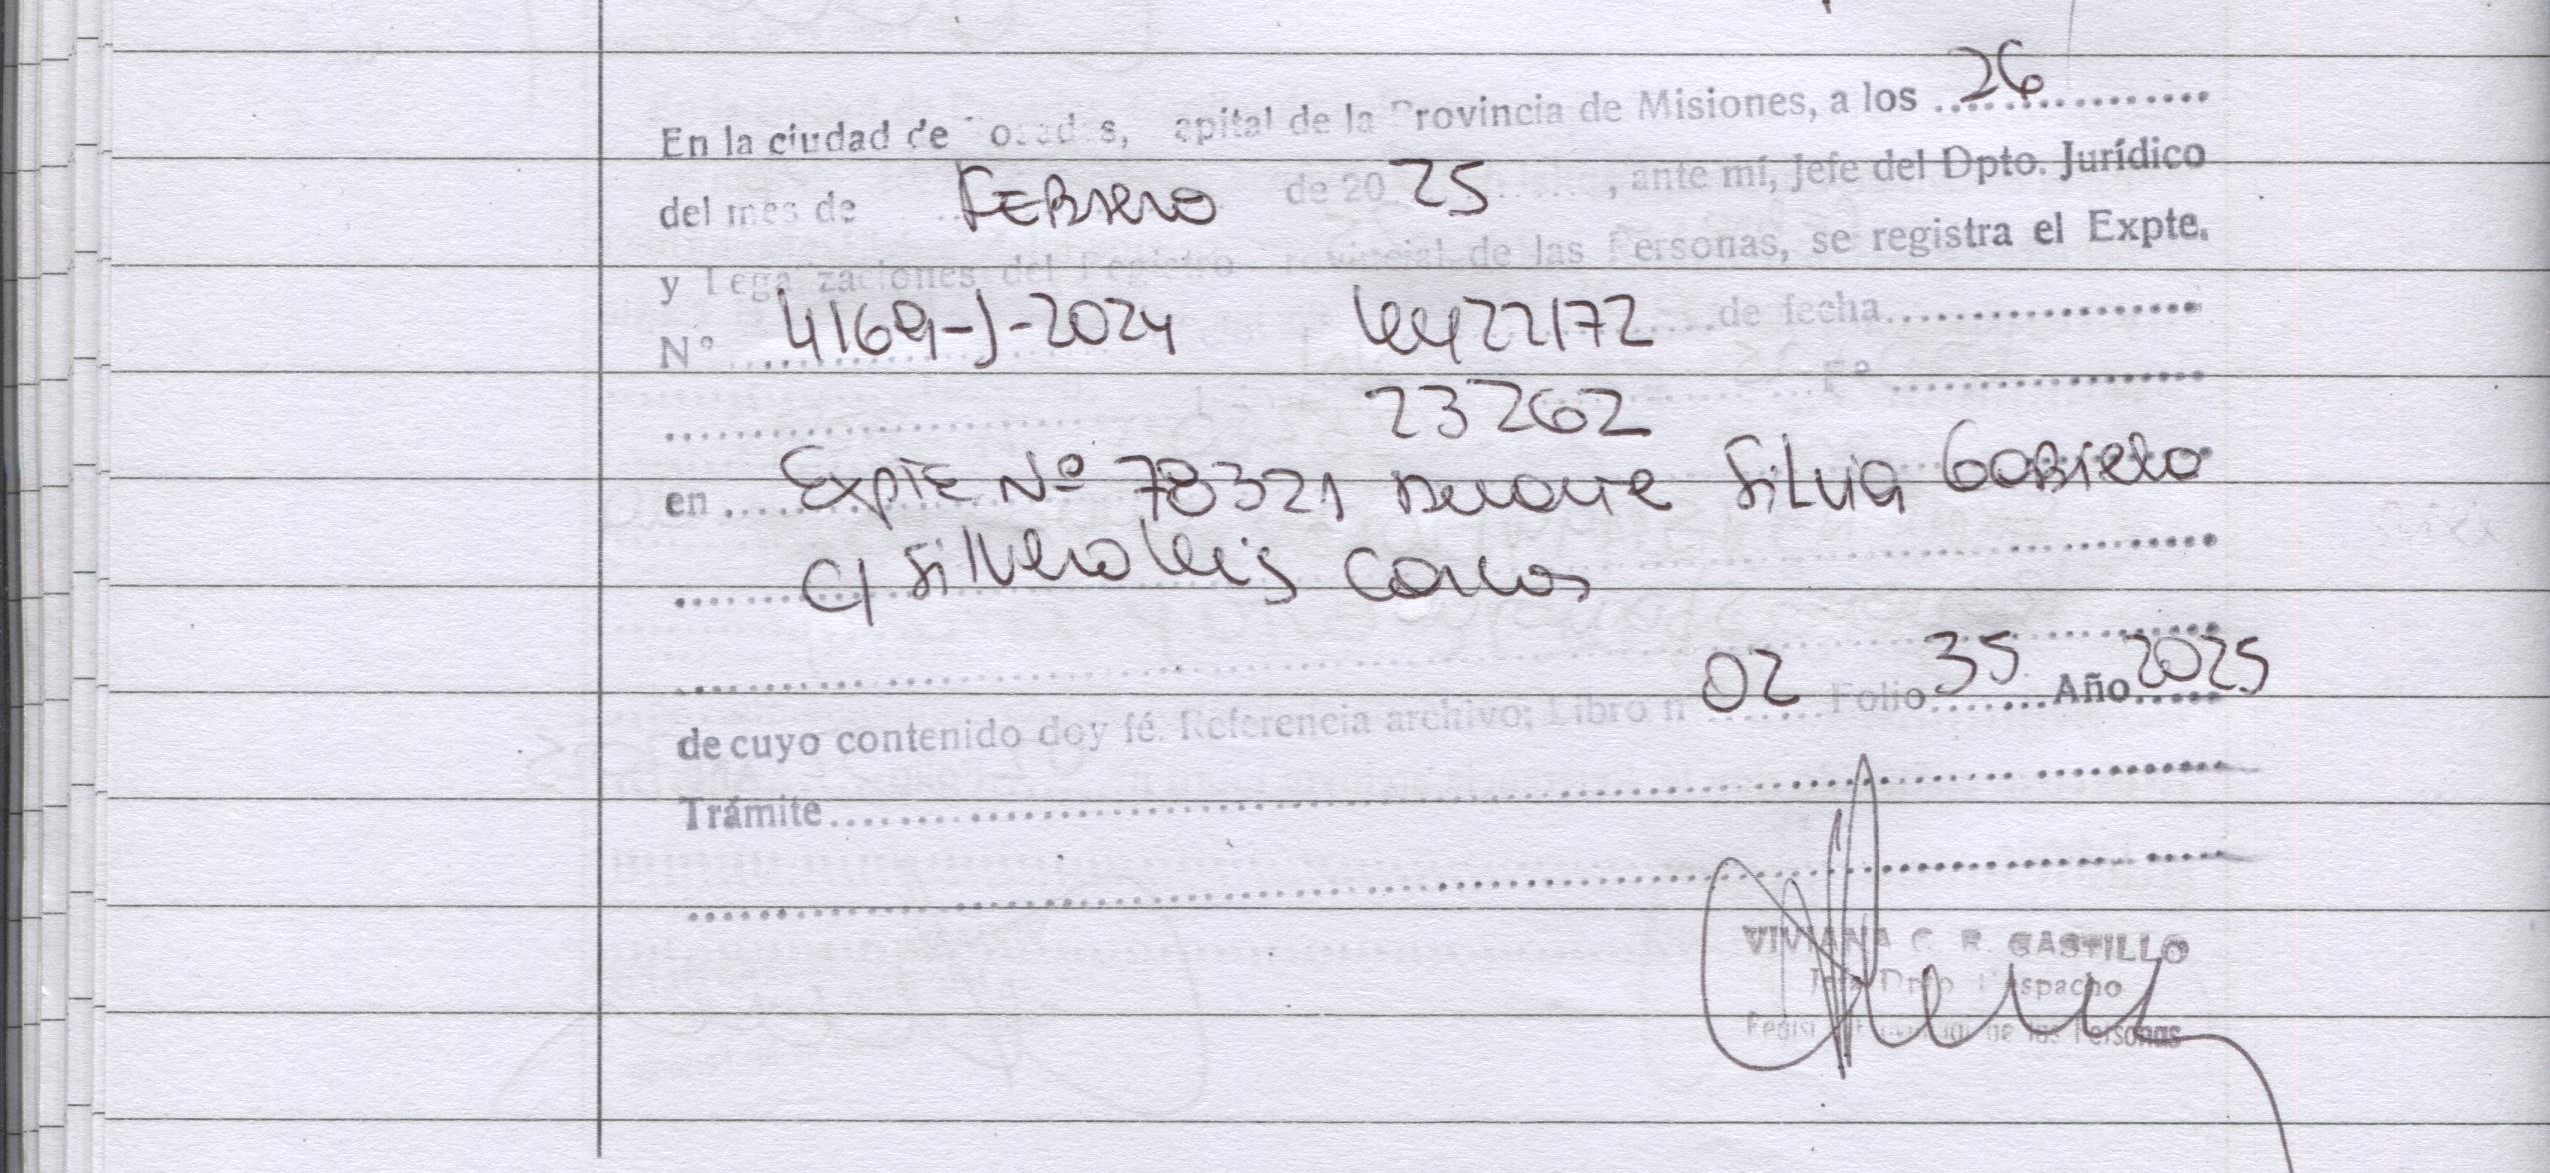 En la ciudad de Posadas, Capital de la Provincia de Misiones, a los 26
del mes de FEBRERO de 2025, ante mí, Jefe del Dpto. Jurídico
y Legalizaciones del Registro Provincial de las Personas, se registra el Expte.
N° 4169-J-2024 4422172 de fecha
23262 F°
en Expte Nº 78321 Duarte Silvia Gabriela
C/ Silvero Luis Carlos
02 35 2025
de cuyo contenido doy fé. Referencia archivo; Libro n Folio Año
Trámite
VIVIANA C. R. CASTILLO
Jefa Dpto Despacho
Registro Provincial de las Personas